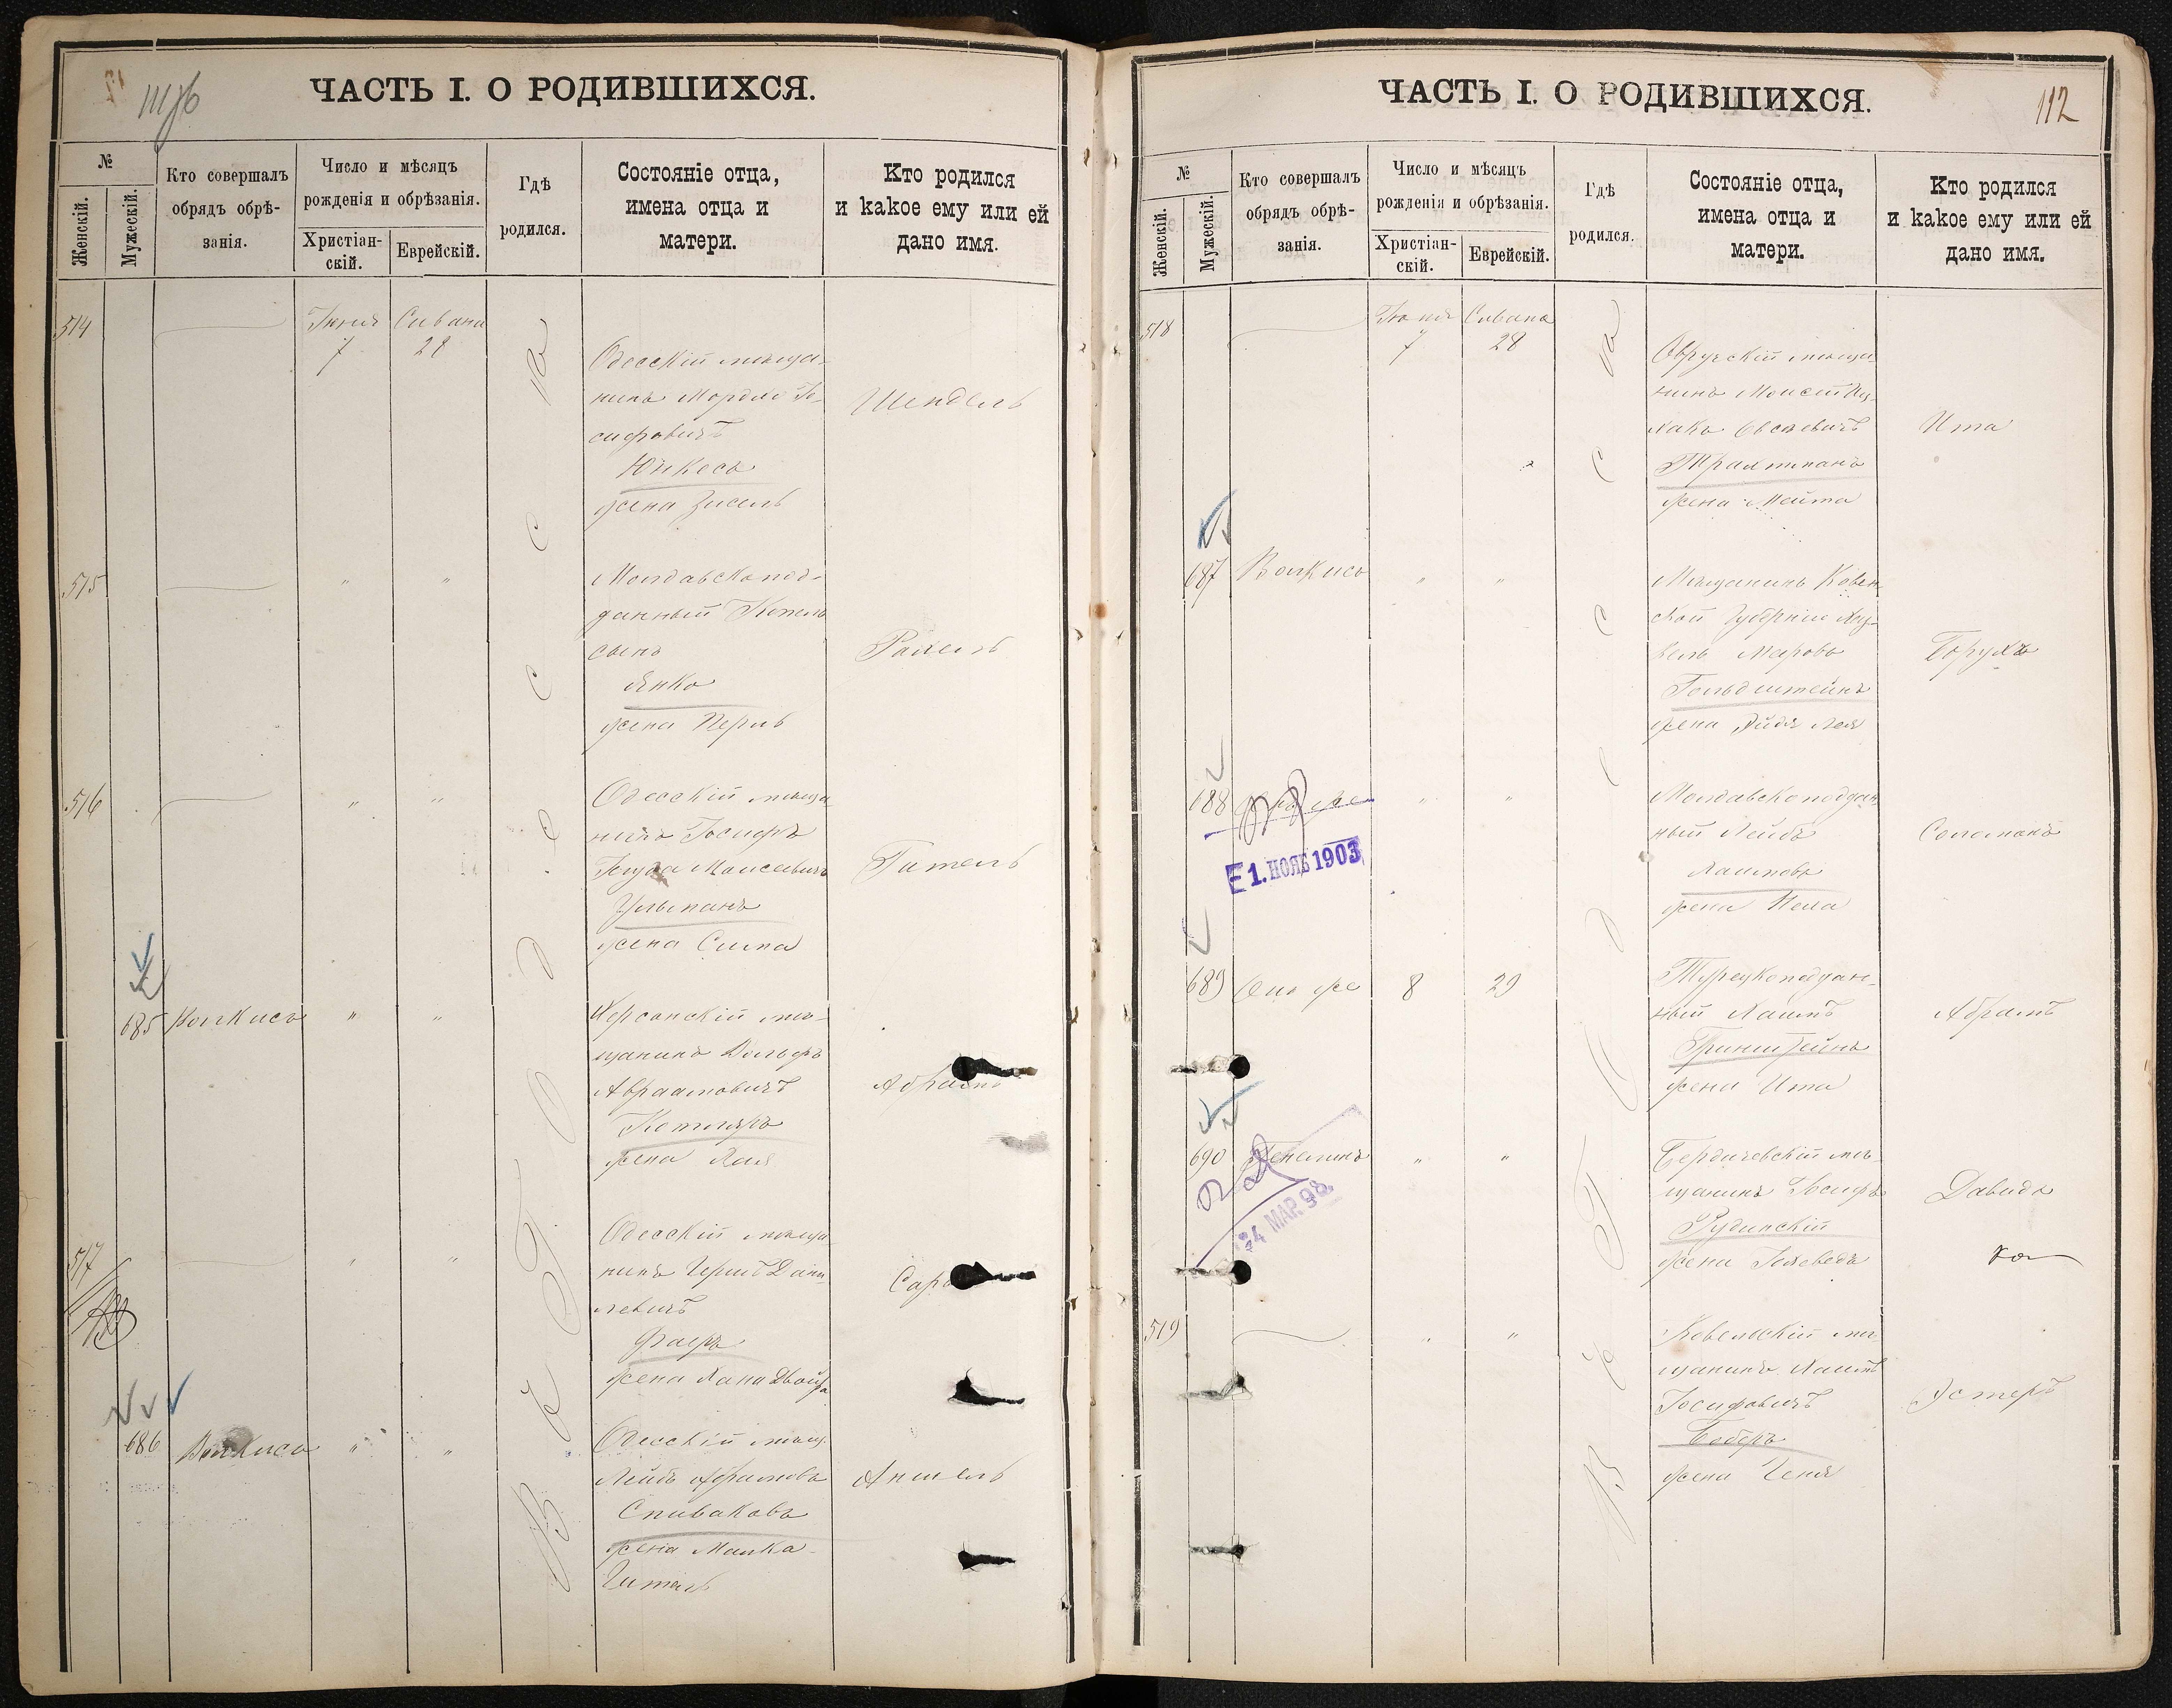 ЧАСТЬ I. О РОДИВШИХСЯ.
№
Женскій.
Мужескій.
Кто совершалъ
обрядъ обрѣ-
занія.
Число и мѣсяцъ
рожденія и обрѣзанія.
Христіан-
скій.
Еврейскій.
Гдѣ
родился.
Состояніе отца,
имена отца и
матери.
Кто родился
и какое ему или ей
дано имя.
514
Іюня
7
Сивана
28
Одесскій мѣща-
нинъ Мордко Іо-
сифовичъ
Юнкесъ
жена Зисель
Шендель
515
" "
Молдавскопод-
данный Копель
сынъ
Янко
жена Перль
Рахель
516
" "
Одесскій мѣща
нинъ Іосифъ
Моисеевичъ
Ульманъ
жена Сима
Гитель
685
Волкисъ
" "
Херсонскій мѣ-
щанинъ Вольфъ
Авраамовичъ
Котляръ
жена Хая
Абрамъ
517
" "
Одесскій мѣща
нинъ Герш Дани
левичъ
Фаеръ
жена Хана Двойра
Сара
686
Волкисъ
" "
Одесскій мѣщ.
Лейбъ Абрамовъ
Спиваковъ
жена Малка
Гитель
Аншель
В г. Одесса
ЧАСТЬ I. О РОДИВШИХСЯ.
112
№
Женскій.
Мужескій.
Кто совершалъ
обрядъ обрѣ-
занія.
Число и мѣсяцъ
рожденія и обрѣзанія.
Христіан-
скій.
Еврейскій.
Гдѣ
родился.
Состояніе отца,
имена отца и
матери.
Кто родился
и какое ему или ей
дано имя.
518
Іюня
7
Сивана
28
Овручскій мѣща
нинъ Моисей Иц-
хакъ Овсеевичъ
Трахтманъ
жена Мейта
Ита
687
Волкисъ
" "
Мѣщанинъ Ковен
ской губерніи Хац-
кель Маровъ
Гольдштейнъ
жена Эйдя Лея
Борухъ
688
Онъ же
" "
Молдавскоподдан
ный Лейбъ
Хаимовъ
жена Пела
Соломонъ
Е 1. НОЯБ 1903
689
Онъ же
8
29
Турецкоподдан-
ный Хаимъ
Гринштейнъ
жена Ита
Абрамъ
690
" "
Бердичевскій мѣ-
щанинъ Іосифъ
Рудинскій
жена Іохеведъ
Давидъ
24 МАР. 98.
519
" "
Ковельскій мѣ
щанинъ Хаимъ
Іосифовичъ
Боберъ
жена Геня
Эстеръ